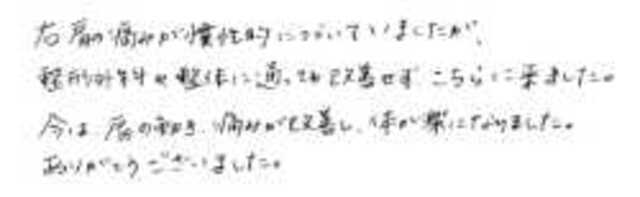 右肩の痛みが慢性的につづいていましたが、
整形外科や整体に通っても改善せず こちらに来ました。
今は 肩の動き、痛みが改善し、体が楽になりました。
ありがとうございました。